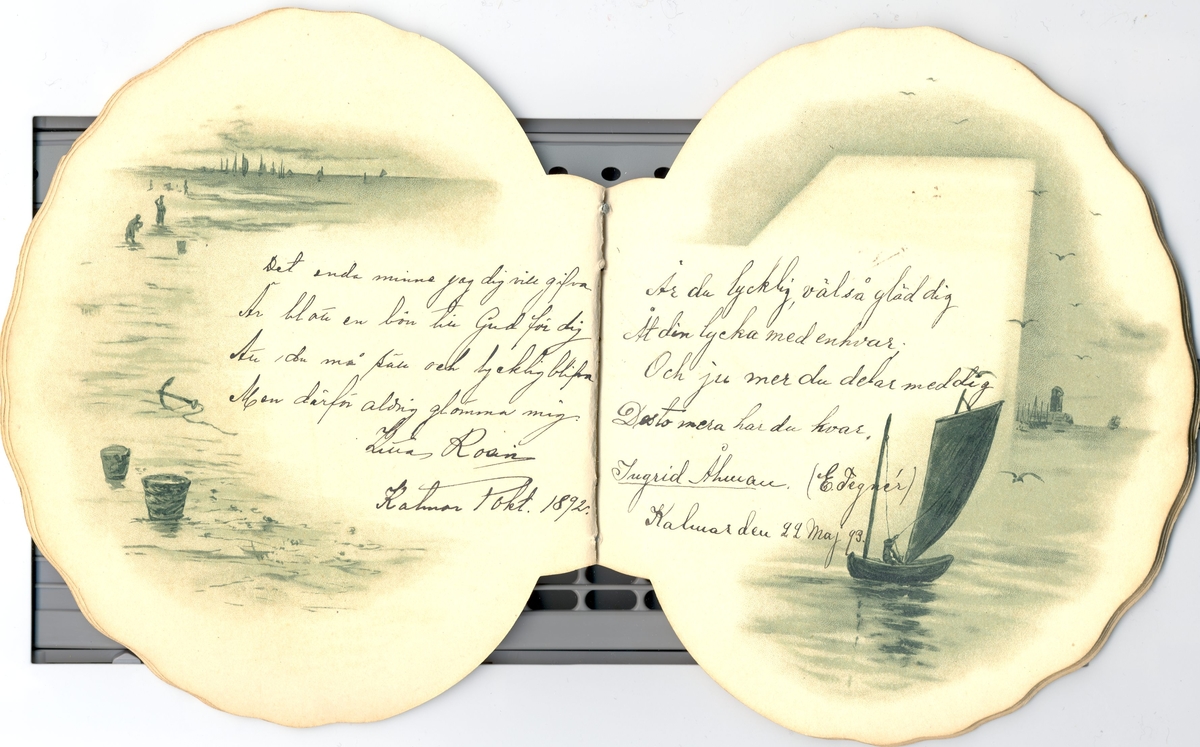 Det enda minne jag dig vill gifva
Är blott en bön till Gud för dig
Att du må säll och lycklig blifva
Men därför aldrig glömma mig.
Rosin
Kalmar 1 okt. 1892.
Är du lycklig, väl så gläd dig
Åt din lycka med enhvar;
Och ju mer du delar med dig
Desto mera har du kvar.
Ingrid Åhman. (E. Tegnér)
Kalmar den 22 Maj 93.